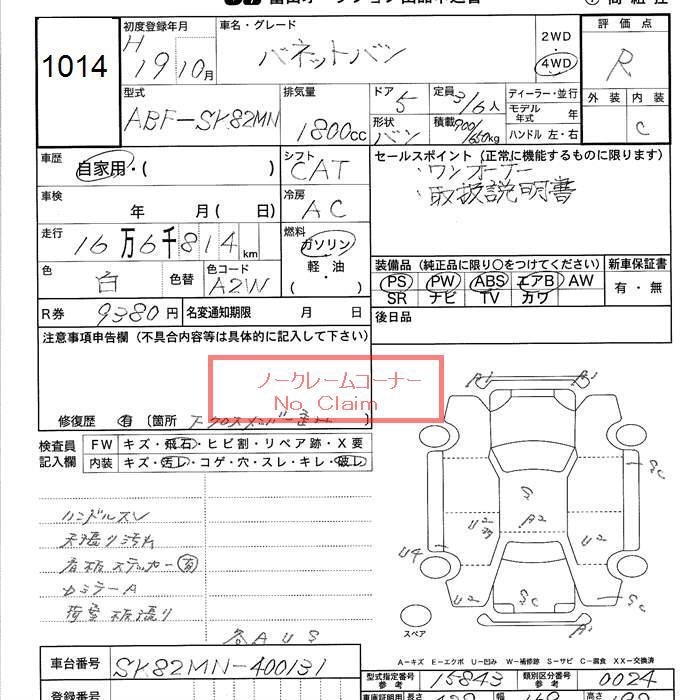 1014
初度登録年月
H 19 10月
車名・グレード
バネットバン
2WD・4WD
評価点
R
外装 内装
C
型式
ABF-SK82MN
排気量
1800cc
ドア 5
定員 3/6人
形状 バン
積載 900/650kg
ディーラー・並行
モデル年式 年
ハンドル 左・右
車歴
自家用・( )
シフト
CAT
セールスポイント (正常に機能するものに限ります)
・ワンオーナー
・取扱説明書
車検
年 月( 日)
冷房
AC
走行
16万6千814km
燃料
ガソリン
軽・油
・( )
色
白
色替
色コード
A2W
装備品 (純正品に限り○をつけてください)
PS PW ABS エアB AW
SR ナビ TV カワ
新車保証書
有・無
R券 9380円
名変通知期限 月 日
後日品
注意事項申告欄 (不具合内容等は具体的に記入して下さい)
ノークレームコーナー
No Claim
修復歴 有 (箇所 )
検査員記入欄
FW キズ・飛石・ヒビ割・リペア跡・X要
内装 キズ・汚レ・コゲ・穴・スレ・キレ・破レ
ハンドルスレ
天張り汚れ
看板ステッカー有
カミラーA
荷室板張り
各AUS
A1 A1
SC
S
A2
U2
U2
U4
U2
SC
SC
スペア
A-キズ E-エクボ U-凹み W-補修跡 S-サビ C-腐食 XX-交換済
車台番号
SK82MN-400131
型式指定番号 参考
15843
類別区分番号 参考
0024
登録番号
車庫証明用 長さ
幅
高さ